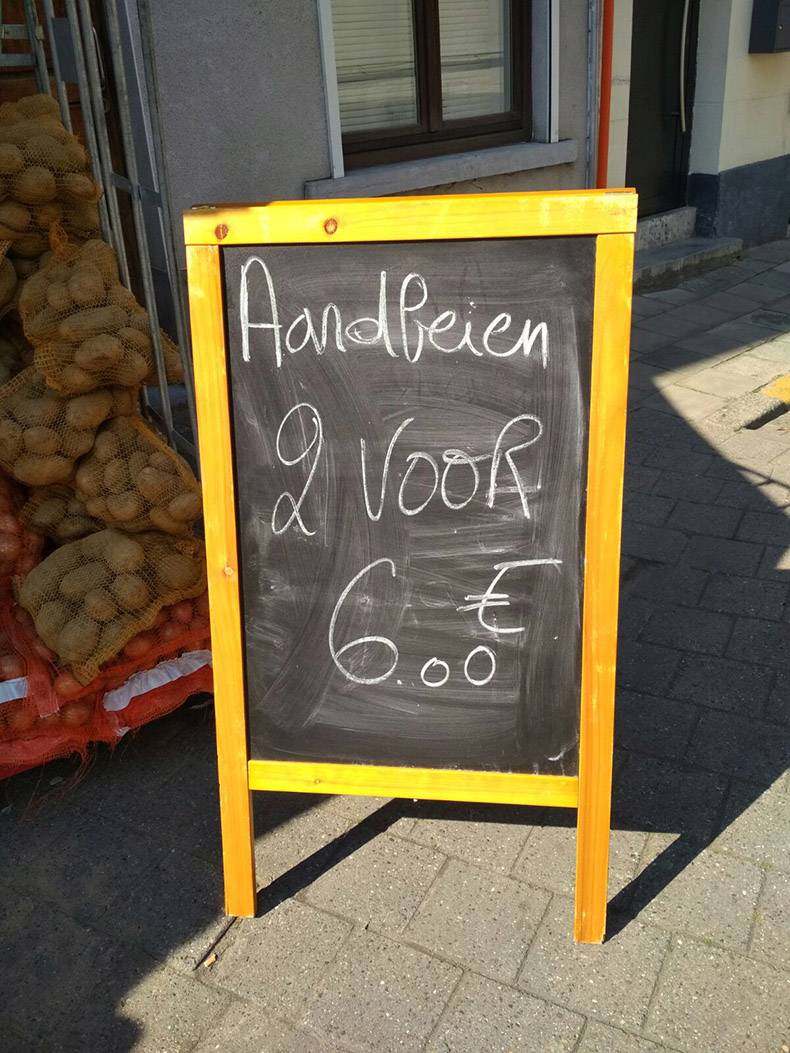 Aandbeien
2 VOOR
6.00 €